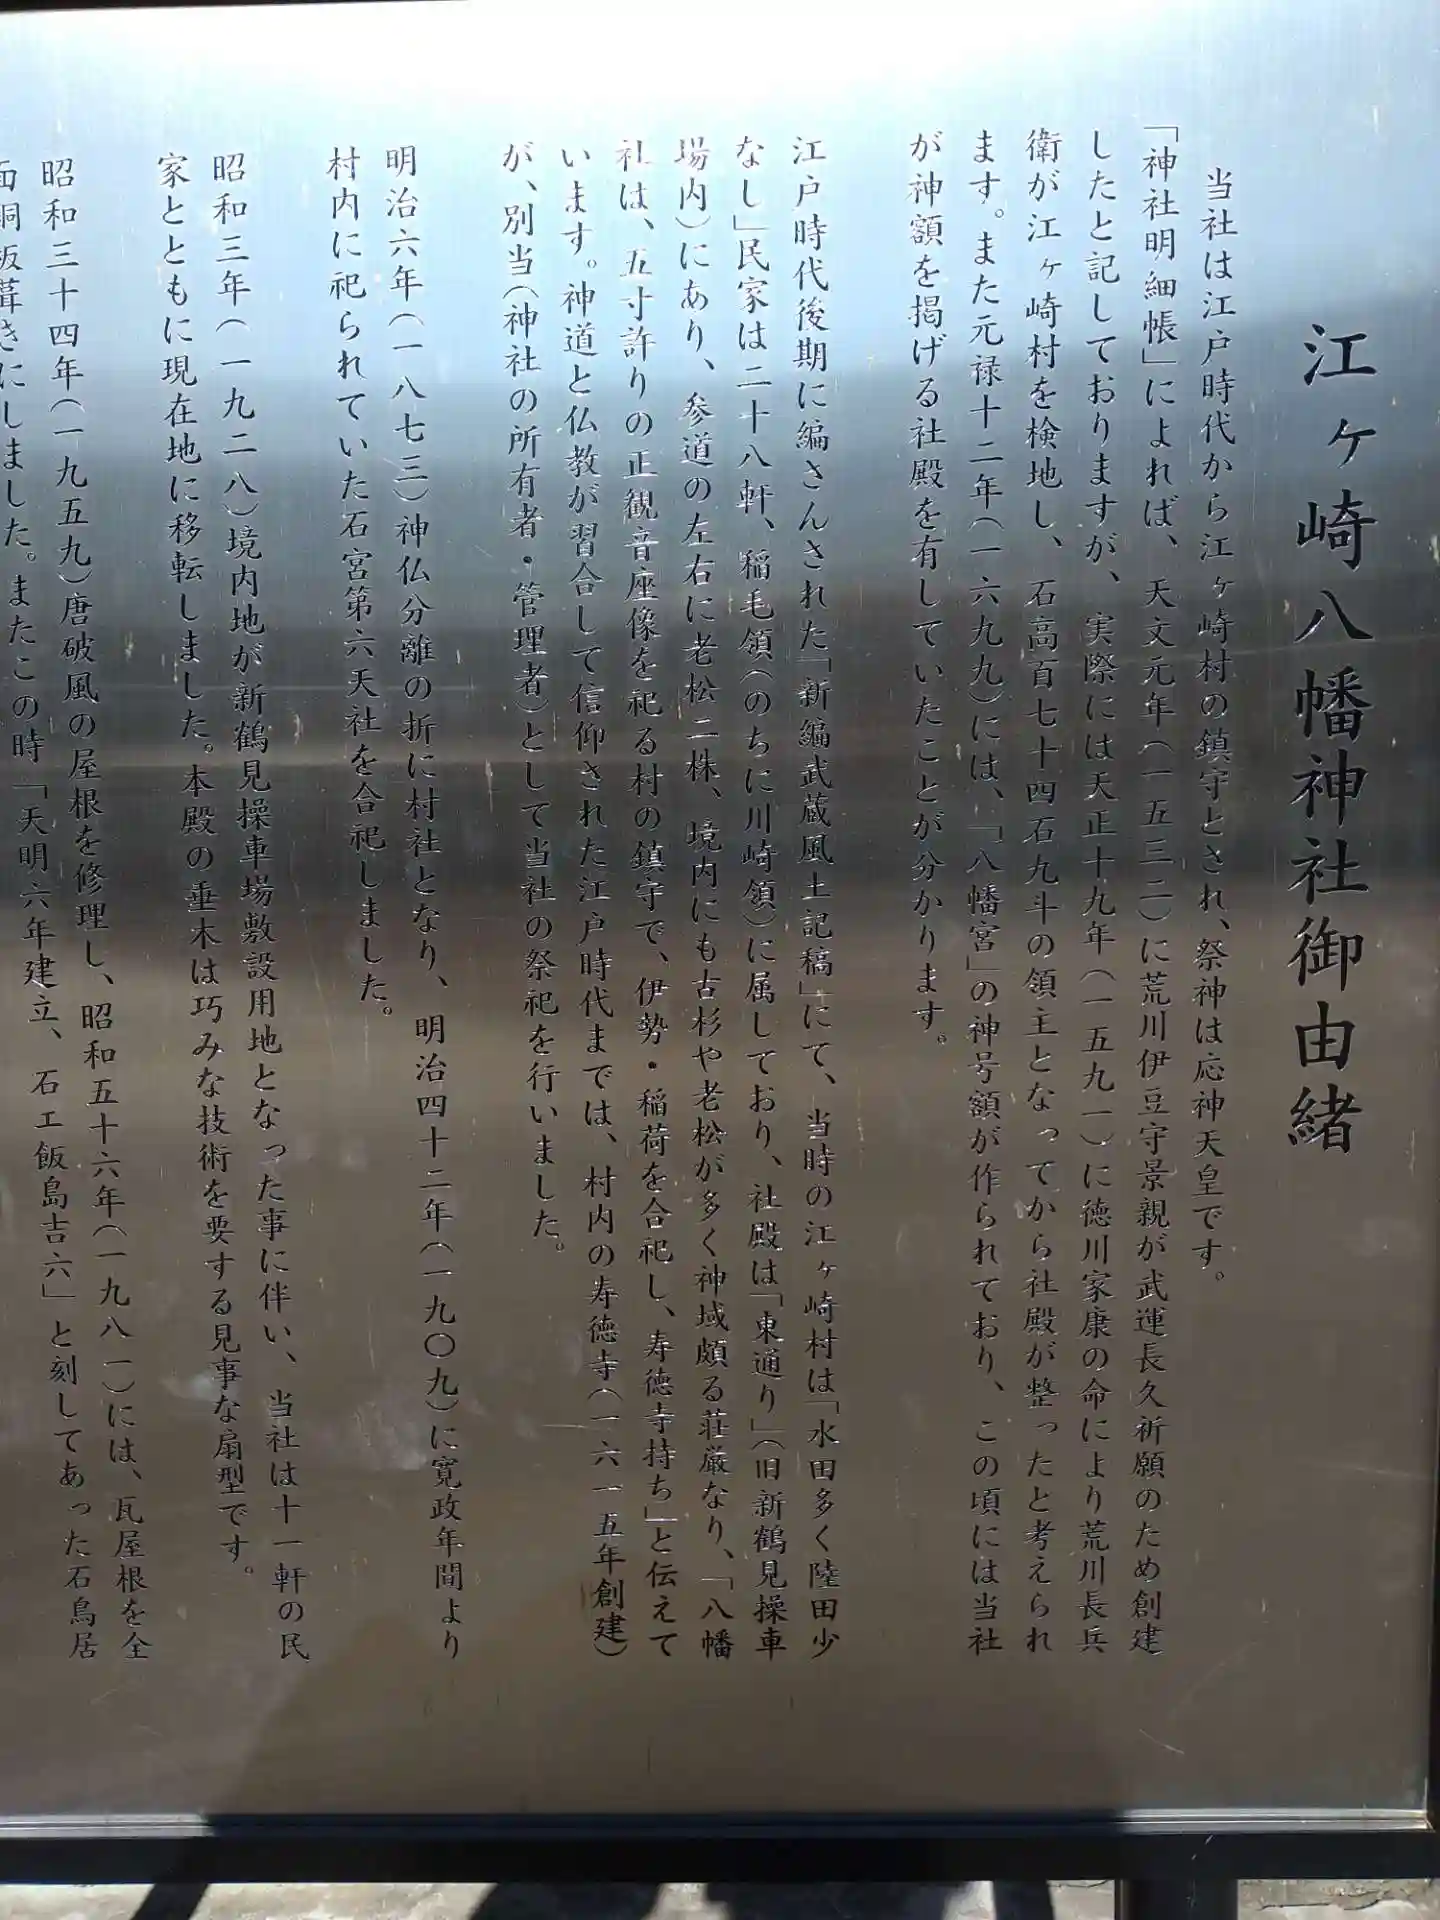 江ヶ崎八幡神社御由緒
当社は江戸時代から江ヶ崎村の鎮守とされ、祭神は応神天皇です。
「神社明細帳」によれば、天文元年(一五三二)に荒川伊豆守景親が武運長久祈願のため創建
したと記しておりますが、実際には天正十九年(一五九一)に徳川家康の命により荒川長兵
衛が江ヶ崎村を検地し、石高百七十四石九斗の領主となってから社殿が整ったと考えられ
ます。また元禄十二年(一六九九)には、「八幡宮」の神号額が作られており、この頃には当社
が神額を掲げる社殿を有していたことが分かります。
江戸時代後期に編さんされた「新編武蔵風土記稿」にて、当時の江ヶ崎村は「水田多く陸田少
なし」民家は二十八軒、稲毛領(のちに川崎領)に属しており、社殿は「東通り」(旧新鶴見操車
場内)にあり、参道の左右に老松二株、境内にも古杉や老松が多く神域頗る荘厳なり、「八幡
社は、五寸許りの正観音座像を祀る村の鎮守で、伊勢・稲荷を合祀し、寿徳寺持ち」と伝えて
います。神道と仏教が習合して信仰された江戸時代までは、村内の寿徳寺(一六一五年創建)
が、別当(神社の所有者・管理者)として当社の祭祀を行いました。
明治六年(一八七三)神仏分離の折に村社となり、明治四十二年(一九〇九)に寛政年間より
村内に祀られていた石宮第六天社を合祀しました。
昭和三年(一九二八)境内地が新鶴見操車場敷設用地となった事に伴い、当社は十一軒の民
家とともに現在地に移転しました。本殿の垂木は巧みな技術を要する見事な扇型です。
昭和三十四年(一九五九)唐破風の屋根を修理し、昭和五十六年(一九八一)には、瓦屋根を全
面銅板葺きにしました。またこの時「天明六年建立、石工飯島吉六」と刻してあった石鳥居